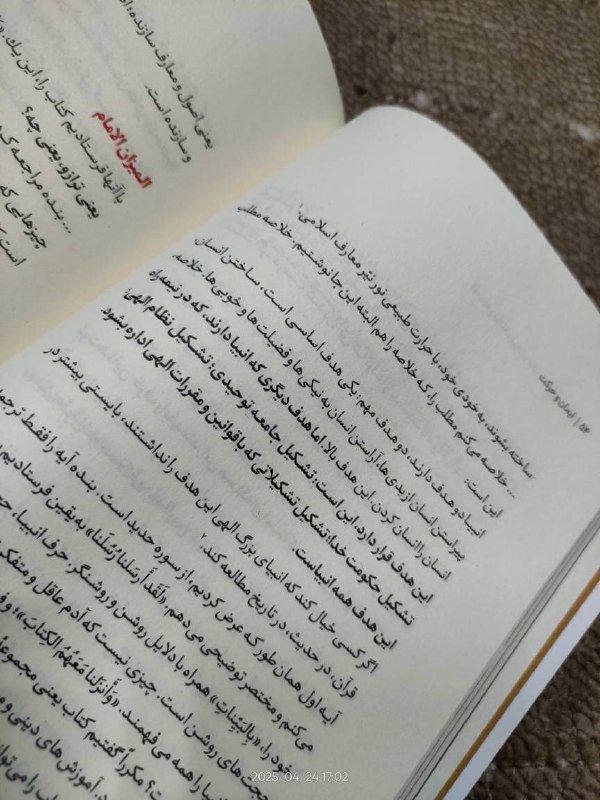 ۵۴ | ایمان و حرکت
ساخته بشوند، به خودی خود، با حرارت طبیعی نور نیّر معارف اسلامی.۱
... خلاصه می‌کنم مطلب را، که خلاصه را هم البته این جا نوشتیم. خلاصه مطلب
این است:
انبیا دو هدف دارند، دو هدف مهم: یکی هدف اساسی است، ساختن انسان
پیراستن انسان از بدی‌ها، آراستن انسان به نیکی‌ها و فضیلت‌ها و خوبی‌ها. خلاصه
انسان را انسان کردن. این هدف بالا. اما هدف دیگری که انبیا دارند، که در نیمه راه
این هدف قرار دارد، این است: تشکیل جامعه توحیدی؛ تشکیل نظام الهی؛
تشکیل حکومت خدا؛ تشکیل تشکیلاتی که با قوانین و مقررات الهی اداره بشود
این هدف همه انبیاست.
اگر کسی خیال کند که انبیای بزرگ الهی این هدف را نداشتند، بایستی بیشتر در
قرآن، در حدیث، در تاریخ مطالعه کند.۲
آیه اول همان طور که عرض کردیم، از سوره حدید است. بنده آیه را فقط ترجمه
می‌کنم و مختصر توضیحی می‌دهم. «لَقَد أَرسَلنا رُسُلَنا» به یقین فرستادیم
خود را، «بِالبَیِّناتِ» همراه با دلایل روشن و روشنگر. حرف انبیا،
حجت‌های روشن است. چیزی نیست که آدم عاقل و متفکر
را همه می‌فهمند. «وَأَنزَلنا مَعَهُمُ الکِتابَ»؛
مکرراً گفتیم کتاب یعنی مجموعه
آموزش‌های دینی و
را می‌توان
یعنی اصول و معارف سازنده؛
و سازنده است
المیزان الامام
با آنها فرستادیم کتاب را، این یک.
یعنی ترازو، یعنی چه؟
... بنده مراجعه کردم
چیزهایی که
است
2025. 04. 24 17:02